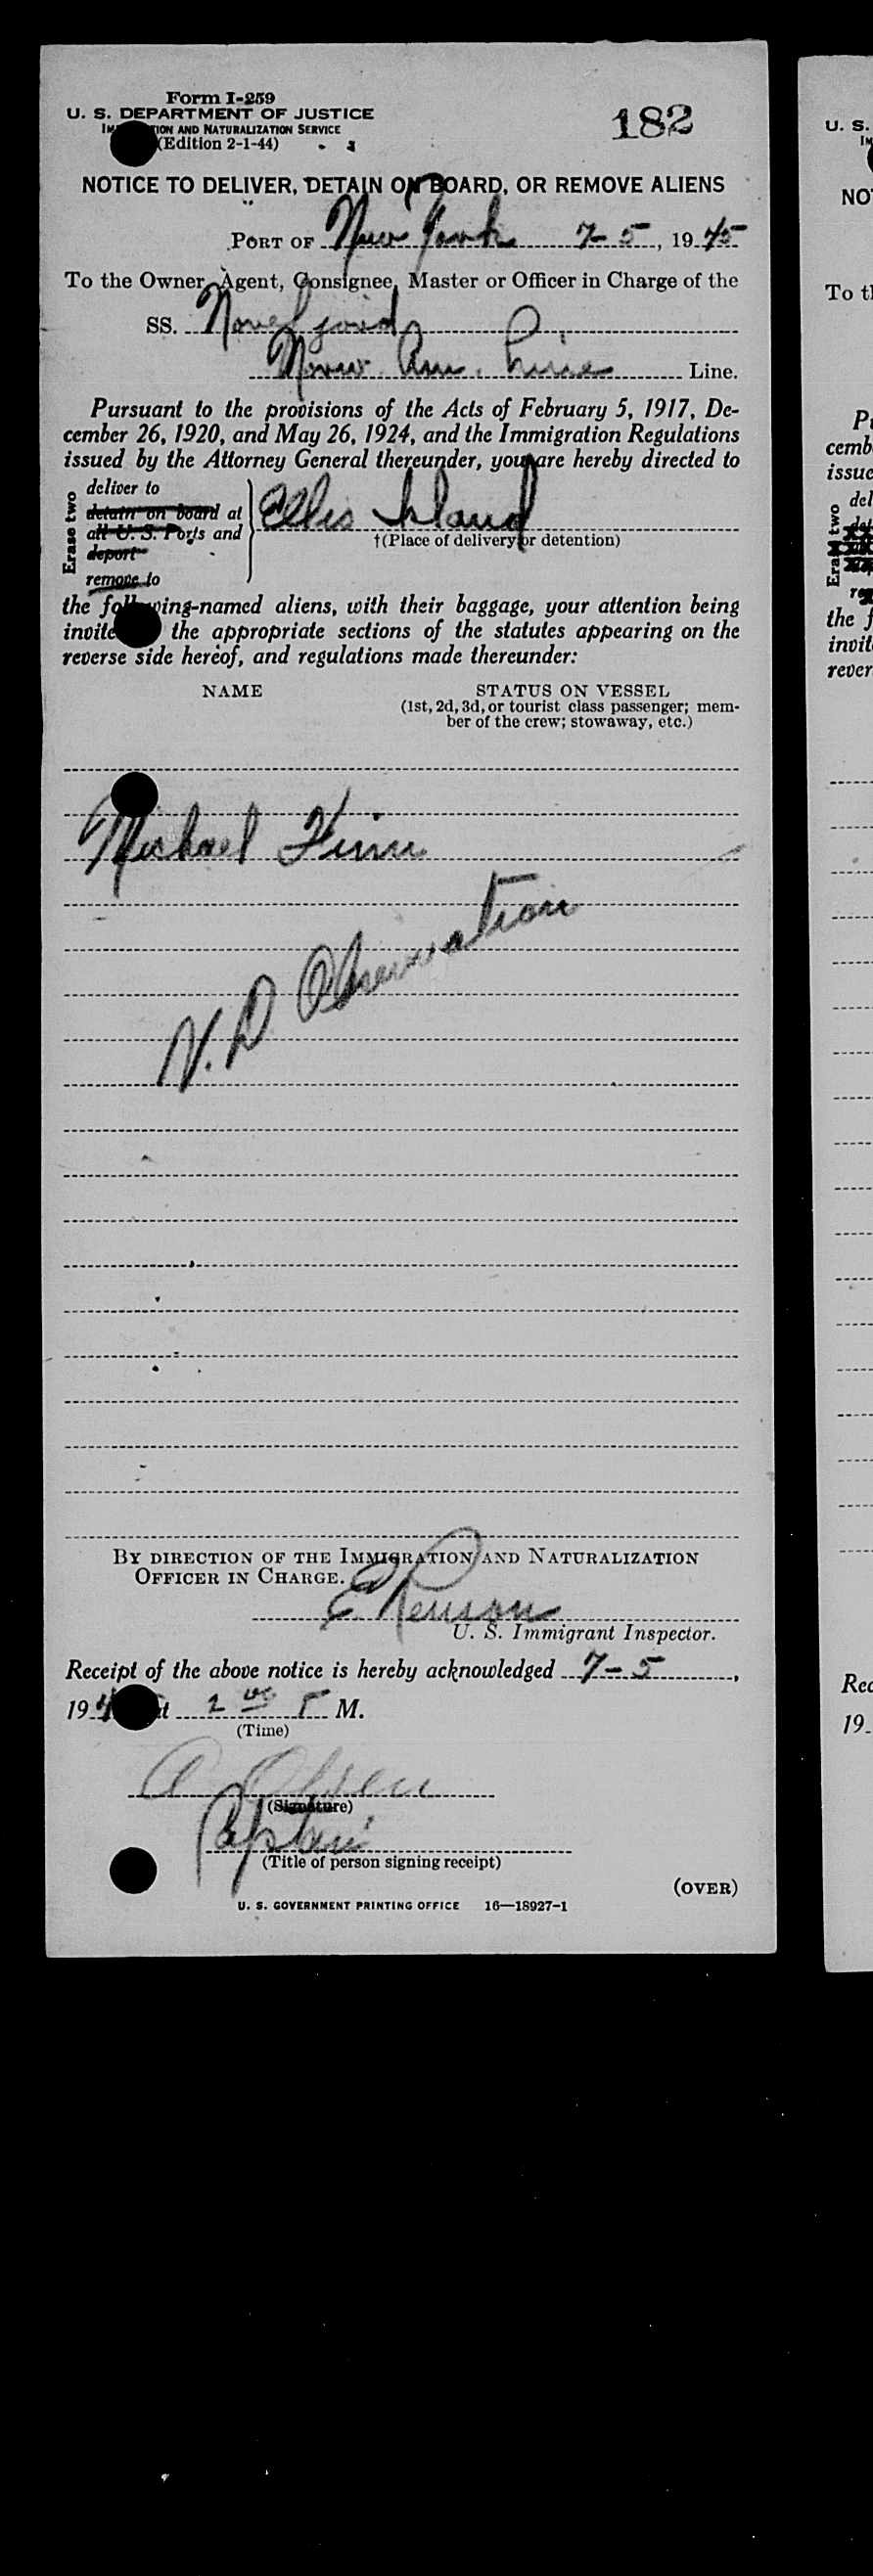 Form I-259
U. S. DEPARTMENT OF JUSTICE
182
IMMIGRATION AND NATURALIZATION SERVICE
(Edition 2-1-44)
NOTICE TO DELIVER, DETAIN ON BOARD, OR REMOVE ALIENS
PORT OF New York 7-5, 1945
To the Owner, Agent, Consignee, Master or Officer in Charge of the
SS.
Norw. Am. Line Line.
Pursuant to the provisions of the Acts of February 5, 1917, De-
cember 26, 1920, and May 26, 1924, and the Immigration Regulations
issued by the Attorney General thereunder, you are hereby directed to
Erase two
deliver to
detain on board at
all U. S. Ports and
deport
remove to
Ellis Island
†(Place of delivery or detention)
the following-named aliens, with their baggage, your attention being
invited the appropriate sections of the statutes appearing on the
reverse side hereof, and regulations made thereunder:
NAME STATUS ON VESSEL
(1st, 2d, 3d, or tourist class passenger; mem-
ber of the crew; stowaway, etc.)
Michael Finn
V. D Observation
BY DIRECTION OF THE IMMIGRATION AND NATURALIZATION
OFFICER IN CHARGE.
E
U. S. Immigrant Inspector.
Receipt of the above notice is hereby acknowledged 7-5,
194 at 2 00 P M.
(Time)
A Olsen
(Signature)
Captain
(Title of person signing receipt)
(OVER)
U. S. GOVERNMENT PRINTING OFFICE 16—18927-1
U. S.
NO
To th
cemb
issue
Erase two
the f
invit
rever
Rec
19